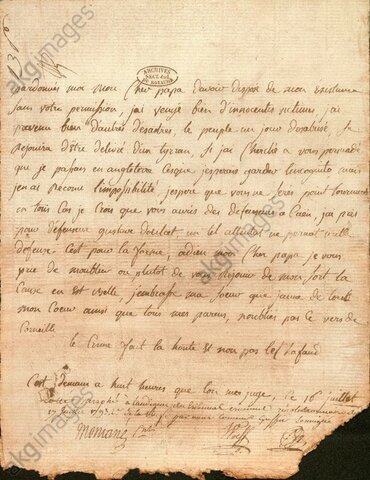 pardonnes moi mon Cher papa davoir disposé de mon existance
sans votre permission, j'ai vengé bien d'innocentes victimes, j'ai
prevenu bien d'autres désastres, le peuple un jour désabusé, se
rejouira d'être délivré dun tyran, si j'ai Cherché a vous persuadé
que je passais en angleterre Cesque jesperais garder lincognito mais
jen ai reconnu limpossibilité, jespere que vous ne serés point tourmenté
en tous Cas je Crois que vous auriés des defenseurs a Caen, jai pris
pour défenseur gustave doulcet un tel attentat ne permet nulle
defense Cest pour la forme, adieu mon Cher papa je vous
prie de moublier ou plutôt de vous rejouir de mon sort la
Cause en est belle, j'embrasse ma soeur que jaime de tout
mon Coeur ainsi que tous mes parens, noubliés pas Ce vers de
Corneille
le Crime fait la honte et non pas lechafaud
Cest demain a huit heures que lon me juge, Ce 16 juillet
ARCHIVES
akg-images
akg-images
akg-images